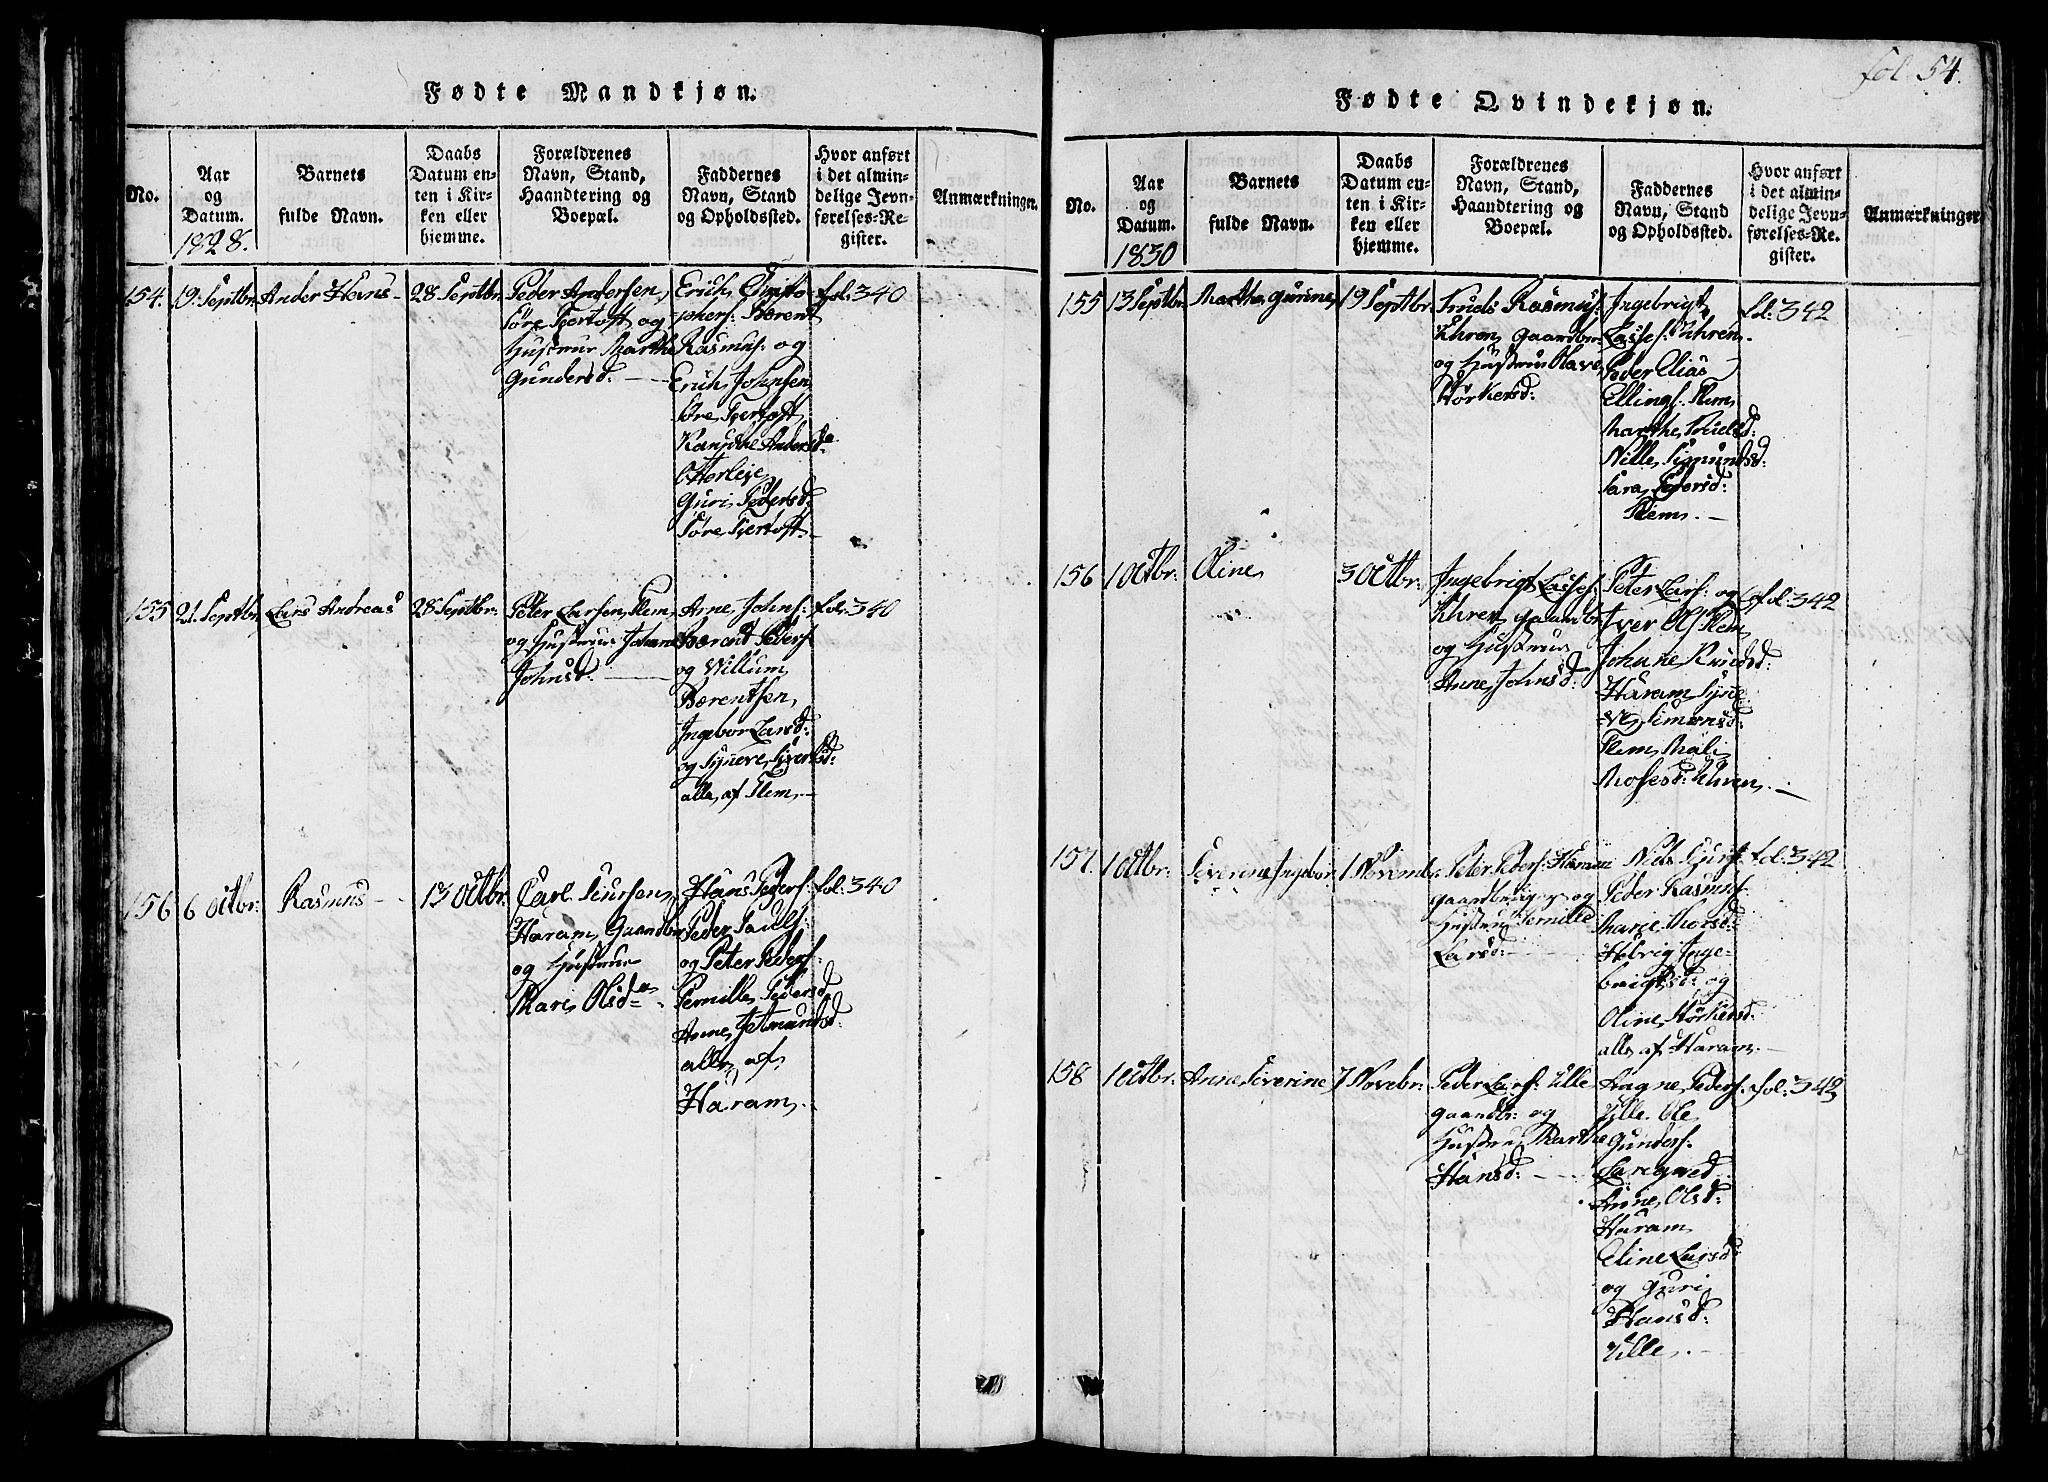 fol. 54.
Fødte Mandkjøn.
No.
Aar
og
Datum.
1828.
Barnets
fulde Navn.
Daabs
Datum en-
ten i Kir-
ken eller
hjemme.
Forældrenes
Navn, Stand,
Haandtering og
Boepæl.
Faddernes
Navn, Stand
og Opholdssted.
Hvor anført
i det almin-
delige Jevn-
førelses-Re-
gister.
Anmærkninger.
154.
19 Septbr.
28 Septbr.
Peder Andersen
Søre Fjertoft og
Hustrue Marthe
Gundersd:
Erich Christo
phers: Berent
Rasmus: og
Erich Johnsen
Søre Fjertoft
Anders
Otterleje
Guri Pedersd:
Søre Fjertoft
fol: 340
155
21. Septbr.
Lars Andreas
28 Septbr:
Peter Larsen Flem
og Hustrue Johane
Johnsd:
Arne Johns:
Berent Peders:
og Willum
Berentsen
Ingebor Larsd:
og Synove Siversd:
alle af Flem
fol: 340
156
6 Octbr:
Rasmus
13 Octbr:
Carl Siursen
Haram, Gaardbr
og Hustrue
Mari Olsd
Hans Peders:
Peder Pauls:
og Peter Peders:
Pernille Pedersd
Anne Jetmundsd:
alle af
Haram
fol: 340
Fødte Qvindekjøn.
No.
Aar
og
Datum.
1830
Barnets
fulde Navn.
Daabs
Datum en-
ten i Kir-
ken eller
hjemme.
Forældrenes
Navn, Stand,
Haandtering og
Boepæl.
Faddernes
Navn, Stand
og Opholdssted.
Hvor anført
i det almin-
delige Jevn-
førelses-Re-
gister.
Anmærkninger
155
13 Septbr.
Marthe Gurine
19 Septbr:
Truels Rasmus:
Uhren gaardbr:
og Hustrue Olave
Hørkersd:
Ingebrigt
Lasses: Uhren
Peder Elias
Ellings: Flem
Marthe Truelsd:
Nille Sigmundsd:
Sara Pedersd:
Flem
fol: 342
156
1 Octbr:
Oline
3 Octbr:
Ingebrigt Lasses:
Uhren gaardbr
og Hustrue
Anne Johnsd:
Peter Lars: og
Iver Ols: Flem
Johane Knudsd:
Haram Syne
ve Simonsd:
Flem Mali
Mosesd: Uhren
fol: 342
157.
1 Octbr:
Siverine Ingebor
1 Novemb:
Peter Peders: Haram
gaardbruger og
Hustrue Pernille
Larsd:
Niels Siurs:
Peder Rasmus:
Marie Thorsd:
Helvig Inge-
brigtsd: og
Oline Hørkersd:
alle af Haram
fol: 342
158
1 Octbr:
Anne Siverine
7 Novebr:
Peder Lars: Ulle
gaardbr: og
Hustrue Marthe
Hansd:
Hagne Peders:
Ulle Ole
Gunders:
Anne Olsd:
Haram
Eline Larsd:
og Guri
Hansd:
Ulle
fol: 342